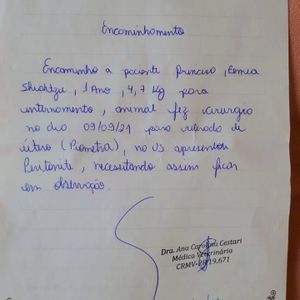 Encaminhamento
Encaminho a paciente Princesa, fêmea
Shichtzu, 1 Ano, 4,7 Kg para
internamento, animal fez cirurgia
no dia 09/09/21 para retirada de
útero (Piometra), no US apresentou
Peritonite, necessitando assim ficar
em observação.
Dra. Ana Carolina Cestari
Médica Veterinária
CRMV-PR 19.671